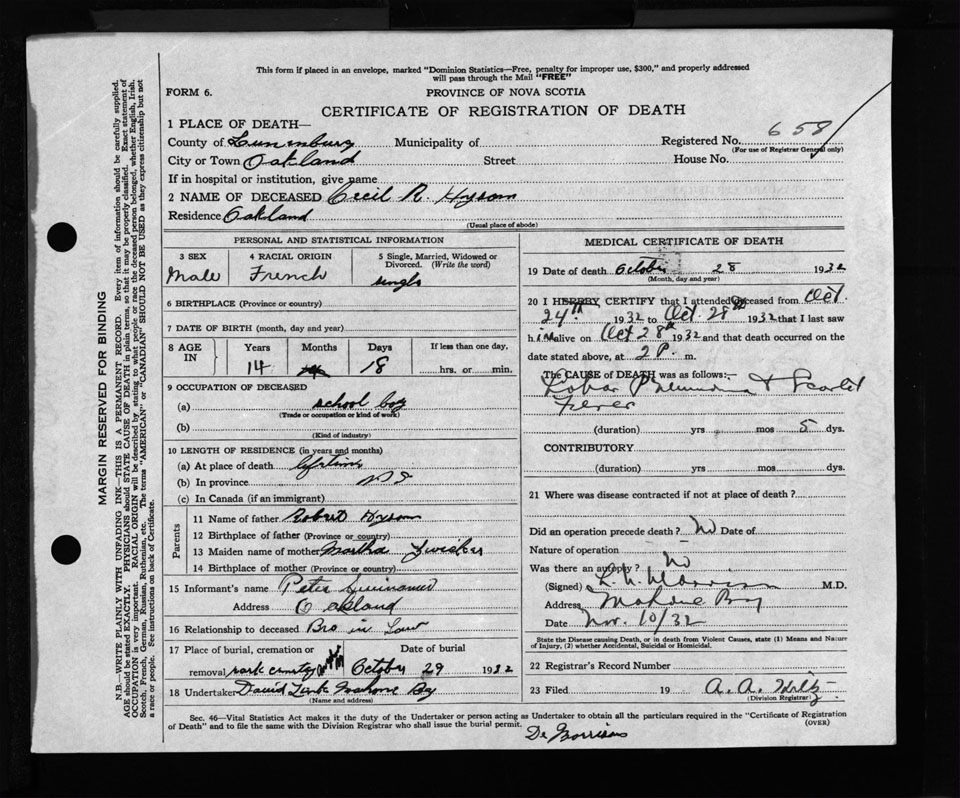 This form if placed in an envelope, marked "Dominion Statistics—Free, penalty for improper use, $300," and properly addressed
will pass through the Mail "FREE"
FORM 6.
PROVINCE OF NOVA SCOTIA
CERTIFICATE OF REGISTRATION OF DEATH
1 PLACE OF DEATH—
County of Lunenburg Municipality of Registered No. 658
(For use of Registrar General only)
City or Town Oakland Street House No.
If in hospital or institution, give name
2 NAME OF DECEASED Cecil R. Hysom
Residence Oakland
(Usual place of abode)
PERSONAL AND STATISTICAL INFORMATION
3 SEX 4 RACIAL ORIGIN 5 Single, Married, Widowed or
Divorced. (Write the word)
Male French single
6 BIRTHPLACE (Province or country)
7 DATE OF BIRTH (month, day and year)
8 AGE IN Years Months Days If less than one day,
14 18 hrs. or min.
9 OCCUPATION OF DECEASED
(a) school boy
(Trade or occupation or kind of work)
(b)
(Kind of industry)
10 LENGTH OF RESIDENCE (in years and months)
(a) At place of death lifetime
(b) In province NS
(c) In Canada (if an immigrant)
Parents
11 Name of father Robert Hysom
12 Birthplace of father (Province or country)
13 Maiden name of mother Martha
14 Birthplace of mother (Province or country)
15 Informant's name Peter
Address Oakland
16 Relationship to deceased Bro in Law
17 Place of burial, cremation or Date of burial
removal park cemetery October 29 1932
18 Undertaker David Zink Mahone Bay
(Name and address)
MEDICAL CERTIFICATE OF DEATH
19 Date of death October 28 1932
(Month, day and year)
20 I HEREBY CERTIFY that I attended deceased from Oct.
24th 1932 to Oct. 28th 1932 that I last saw
him alive on Oct 28th 1932 and that death occurred on the
date stated above, at 2 P. m.
The CAUSE of DEATH was as follows:—
Lobar & Scarlet
Fever
(duration) yrs mos 5 dys.
CONTRIBUTORY
(duration) yrs mos dys.
21 Where was disease contracted if not at place of death?
Did an operation precede death? No Date of
Nature of operation
Was there an autopsy? No
(Signed) M.D.
Address Mahone Bay
Date Nov. 10/32
State the Disease causing Death, or in death from Violent Causes, state (1) Means and Nature
of Injury, (2) whether Accidental, Suicidal or Homicidal.
22 Registrar's Record Number
23 Filed 19 A. A. Hiltz
(Division Registrar)
Sec. 46—Vital Statistics Act makes it the duty of the Undertaker or person acting as Undertaker to obtain all the particulars required in the "Certificate of Registration
of Death" and to file the same with the Division Registrar who shall issue the burial permit. (OVER)
MARGIN RESERVED FOR BINDING
N.B.—WRITE PLAINLY WITH UNFADING INK—THIS IS A PERMANENT RECORD. Every item of information should be carefully supplied.
AGE should be stated EXACTLY. PHYSICIANS should STATE CAUSE OF DEATH in plain terms, so that it may be properly classified. Exact statement of
OCCUPATION is very important. RACIAL ORIGIN will be described by stating to what people or race the deceased person belonged, whether English, Irish,
Scotch, French, German, Russian, Ruthenian, etc. The terms "AMERICAN" or "CANADIAN" SHOULD NOT BE USED as they express citizenship but not
a race or people. See instructions on back of Certificate.